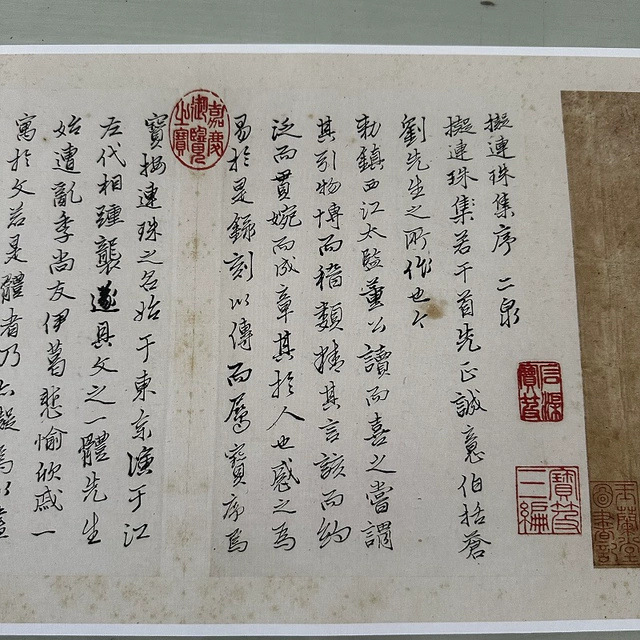 擬連珠集序 二泉
擬連珠集若干首先正誠意伯括蒼
劉先生之所作也今
勅鎮西江太監董公讀而喜之嘗謂
其引物博而稽類精其言該而約
泛而貫婉而成章其於人也感之為
易於是錄刻以傳而屬寶序焉
寶按連珠之名始于東京演于江
左代相踵襲遂具文之一體先生
始遭亂季尚友伊葛悲愉欣慼一
寓於文若是體者乃
嘉慶御覽之寶
石渠寶笈
寶笈三編